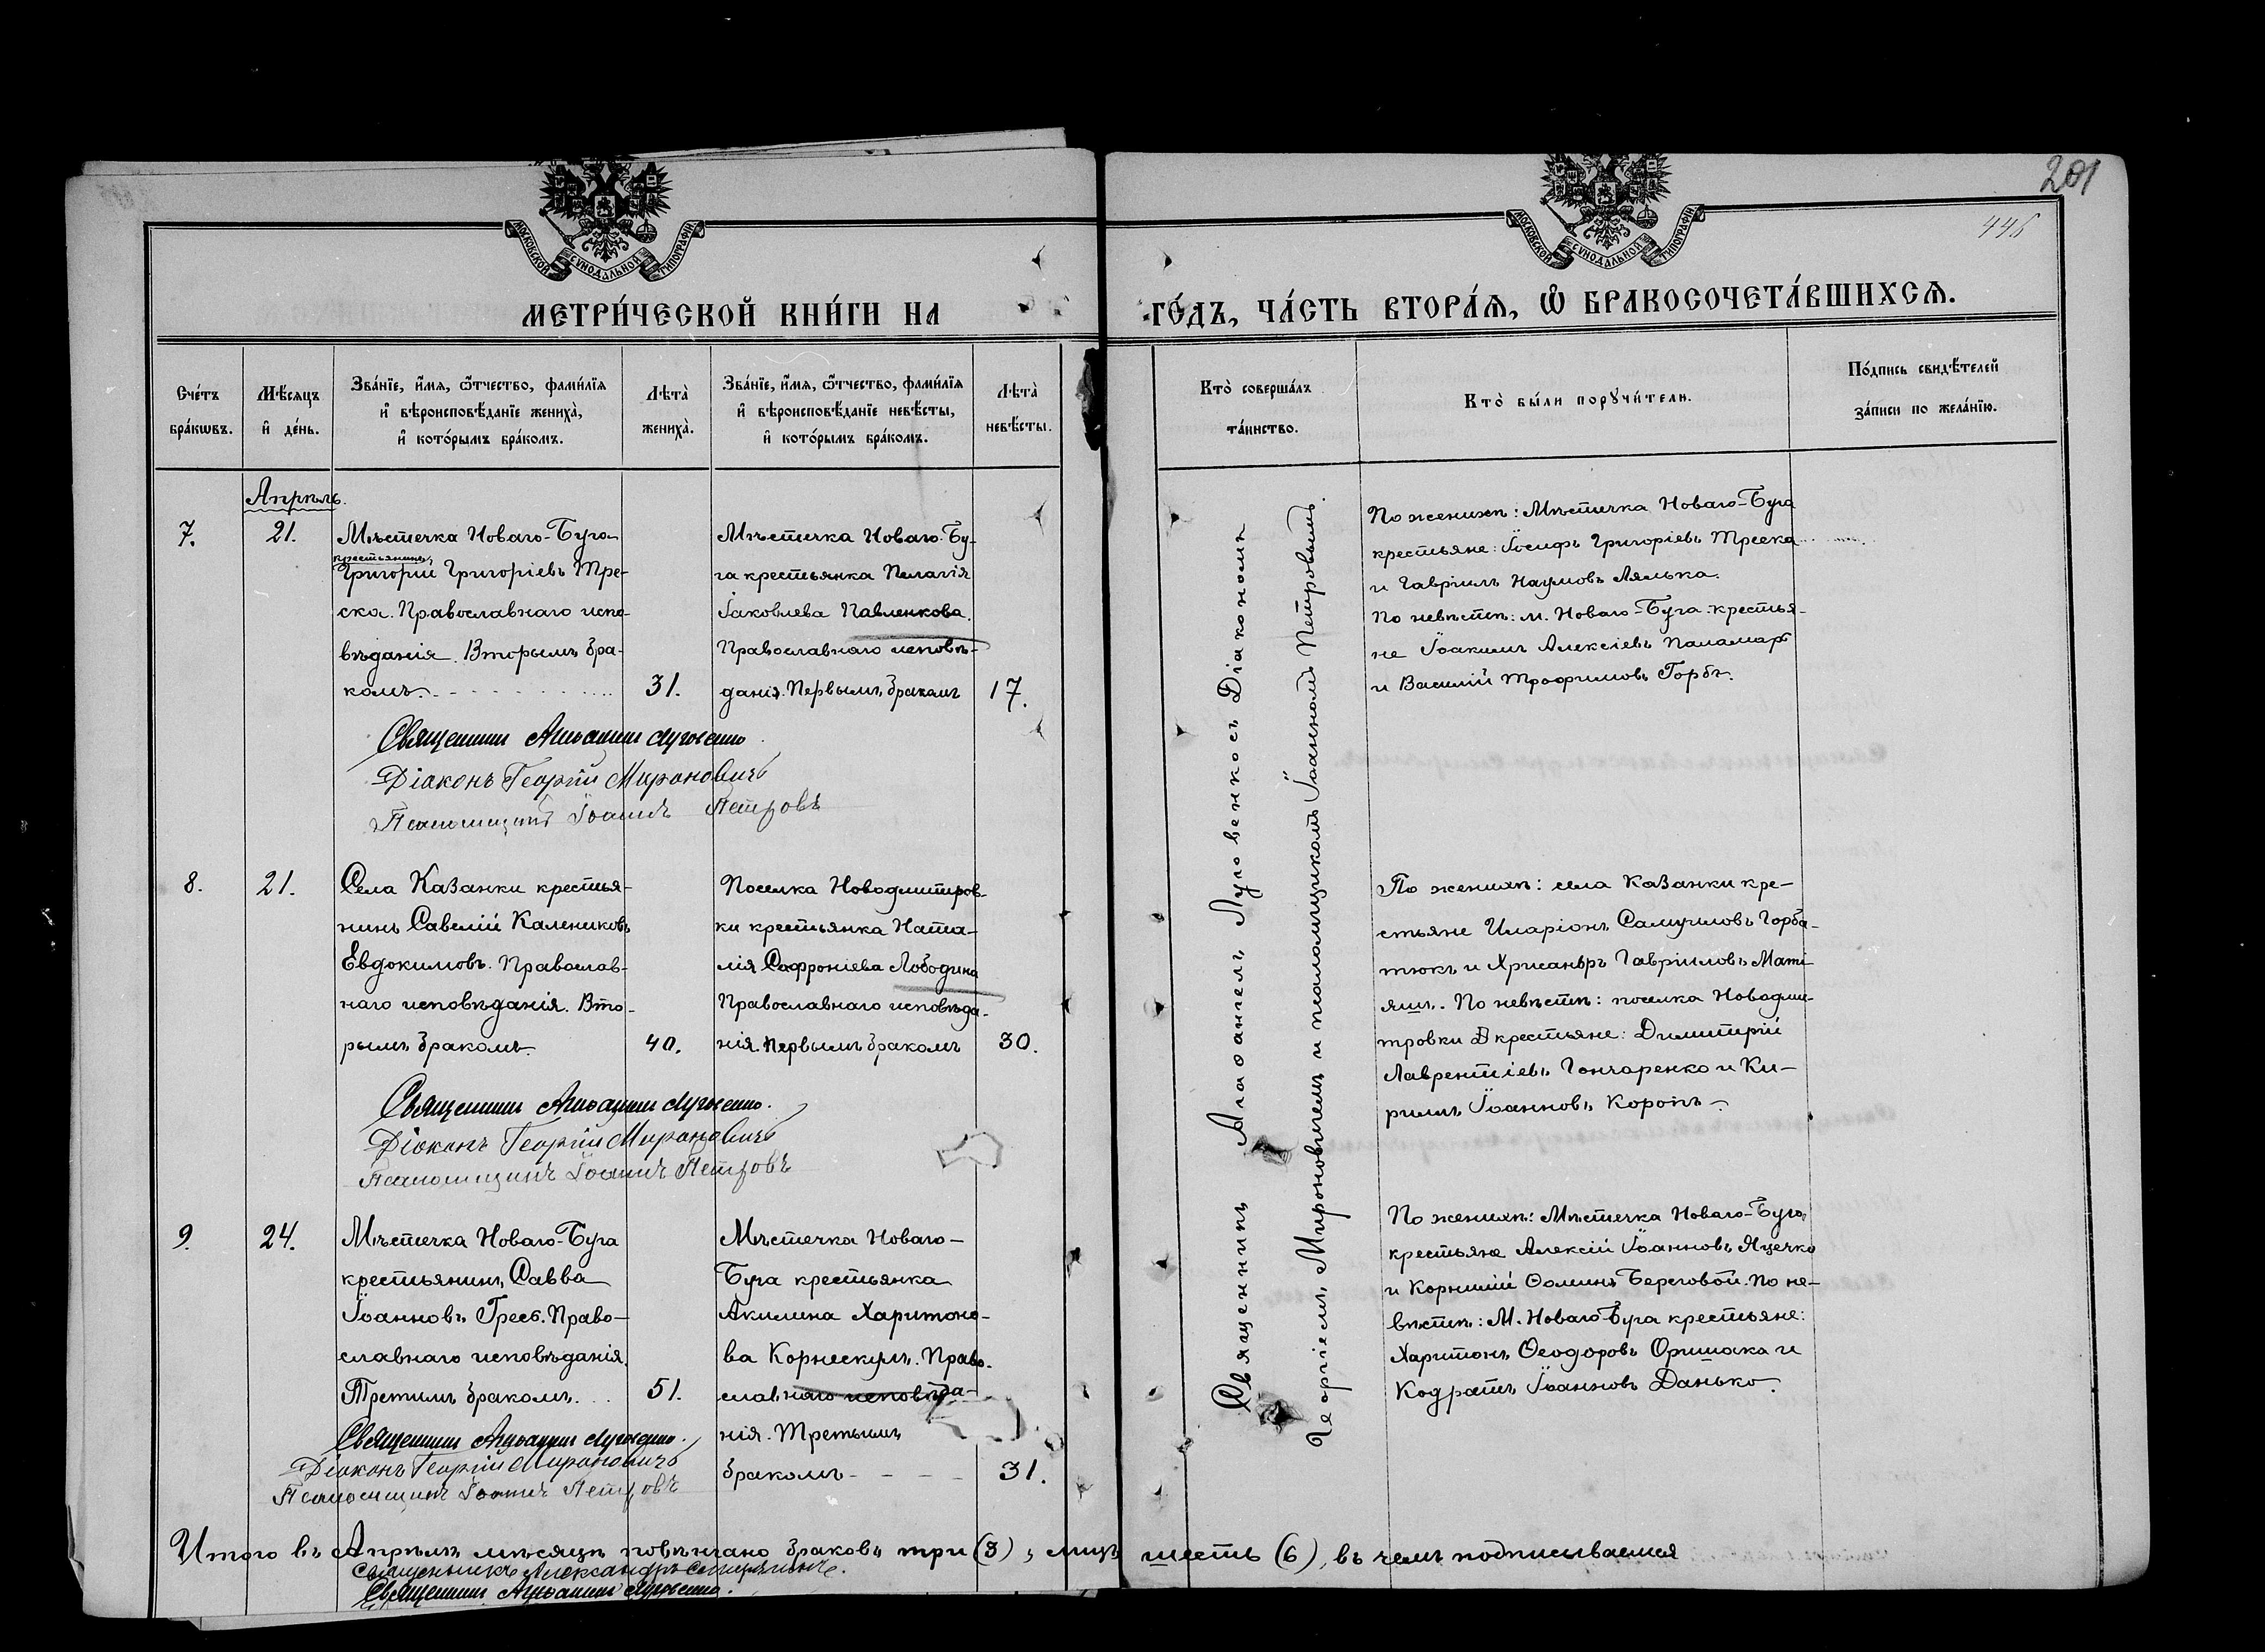 201
446
МОСКОВСКОЙ СѴНОДАЛЬНОЙ ТИПОГРАФІИ
МОСКОВСКОЙ СѴНОДАЛЬНОЙ ТИПОГРАФІИ
МЕТРИ́ЧЕСКОЙ КНИ́ГИ НА
ГО́ДЪ, ЧА́СТЬ ВТОРА́Ѧ, Ѽ БРАКОСОЧЕТА́ВШИХСѦ.
Сче́тъ
бра́кѡвъ.
Мѣ́сяцъ
и҆ де́нь.
Зва́нїе, и҆́мѧ, ѻ҆́тчество, фами́лїѧ
и҆ вѣроисповѣ́данїе жениха̀,
и҆ кото́рымъ бра́комъ.
Лѣ́та
жениха̀.
Зва́нїе, и҆́мѧ, ѻ҆́тчество, фами́лїѧ
и҆ вѣроисповѣ́данїе невѣ́сты,
и҆ кото́рымъ бра́комъ.
Лѣ́та
невѣ́сты.
Кто̀ соверша́лъ
та́инство.
Кто̀ бы́ли порꙋчи́тели.
По́дпись свидѣ́телей
за́писи по жела́нїю.
Апрѣль.
7.
21.
Мѣстечка Новаго-Буга
крестьянинъ
Григорій Григоріевъ Тре-
ска. Православнаго испо-
вѣданія. Вторымъ бра-
комъ.
31.
Мѣстечка Новаго-Бу-
га крестьянка Пелагія
Іаковлева Павленкова.
Православнаго исповѣ-
данія. Первымъ бракомъ
17.
По женихѣ: Мѣстечка Новаго-Буга
крестьяне: Іосифъ Григоріевъ Треска
и Гавріилъ Наумовъ Лялька.
По невѣстѣ: м. Новаго-Буга крестья-
не Іоакимъ Алексіевъ Паламарь
и Василій Трофимовъ Горбъ.
Священникъ Агаѳангелъ Луговенко
Діаконъ Георгій Мироновичъ
Псаломщикъ Іоаннъ Петровъ
8.
21.
Села Казанки крестья-
нинъ Савелій Калениковъ
Евдокимовъ. Православ-
наго исповѣданія. Вто-
рымъ бракомъ.
40.
Поселка Новодмитров-
ки крестьянка Ната-
лія Софроніева Лободина
Православнаго исповѣда-
нія. Первымъ бракомъ
30.
По женихѣ: села Казанки кре-
стьяне Иларіонъ Самуиловъ Горба-
тюкъ и Хрисанѳъ Гавріиловъ Мати-
яш. По невѣстѣ: поселка Новодми-
тровки крестьяне: Димитрій
Лаврентіевъ Гончаренко и Ки-
риллъ Іоанновъ Коропъ.
Священникъ Агаѳангелъ Луговенко.
Діаконъ Георгій Мироновичъ
Псаломщикъ Іоаннъ Петровъ
9.
24.
Мѣстечка Новаго-Буга
крестьянинъ Савва
Іоанновъ Греб. Право-
славнаго исповѣданія.
Третимъ бракомъ.
51.
Мѣстечка Новаго-
Буга крестьянка
Акилина Харитоно-
ва Корнескулъ. Право-
славнаго исповѣда-
нія. Третьимъ
бракомъ
31.
По женихѣ: Мѣстечка Новаго-Буга
крестьяне Алексій Іоанновъ Яцечко
и Корнилій Ѳоминъ Береговой. По не-
вѣстѣ: М. Новаго Буга крестьяне:
Харитонъ Ѳеодоровъ Оришака и
Кодратъ Іоанновъ Данько.
Священникъ Агаѳангелъ Луговенко.
Діаконъ Георгій Мироновичъ
Псаломщикъ Іоаннъ Петровъ
Священникъ Агаѳангелъ Луговенко съ Діакономъ
Георгіемъ Мироновичемъ и псаломщикомъ Іоанномъ Петровымъ.
Итого въ Апрѣлѣ мѣсяцѣ повѣнчано браковъ три (3), лицъ шесть (6), въ чемъ подписываемся
Священникъ Александръ
Священникъ Агаѳангелъ Луговенко.